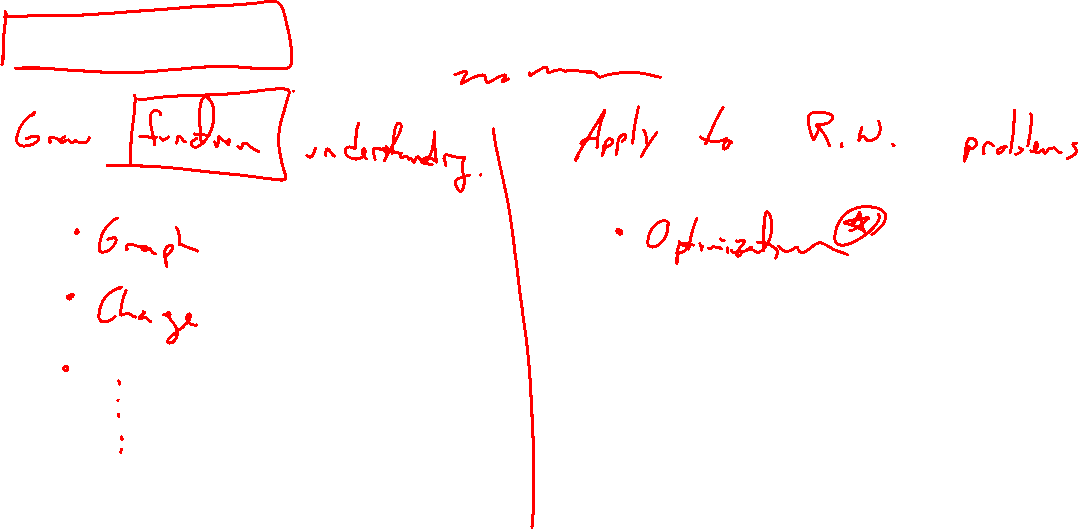 Grow function understanding.
• Graph
• Change
•
Apply to R.W. problems
• Optimization